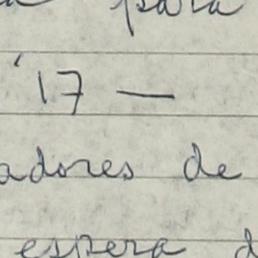 para
'17 —
adores de
espera d